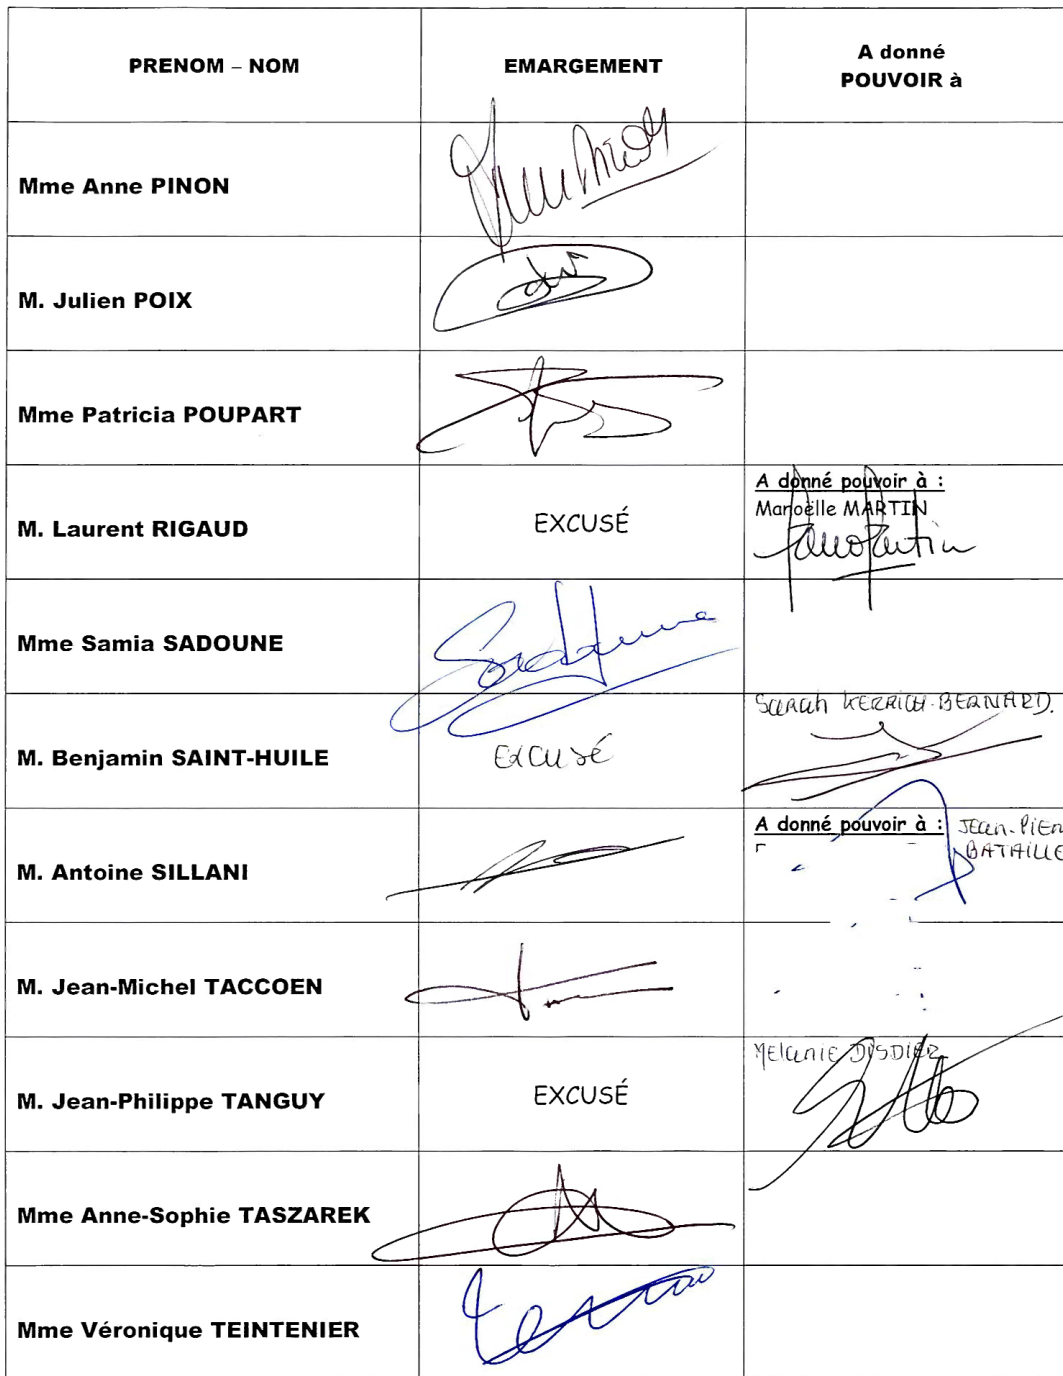 PRENOM – NOM
EMARGEMENT
A donné
POUVOIR à
Mme Anne PINON
M. Julien POIX
Mme Patricia POUPART
M. Laurent RIGAUD
EXCUSÉ
A donné pouvoir à :
Manoëlle MARTIN
Mme Samia SADOUNE
Sadoune
M. Benjamin SAINT-HUILE
EXCUSÉ
Sarah KERRICH-BERNARD.
M. Antoine SILLANI
A donné pouvoir à : Jean-Pierr
BATAILLE
M. Jean-Michel TACCOEN
M. Jean-Philippe TANGUY
EXCUSÉ
Mélanie DISDIER
Mme Anne-Sophie TASZAREK
Mme Véronique TEINTENIER